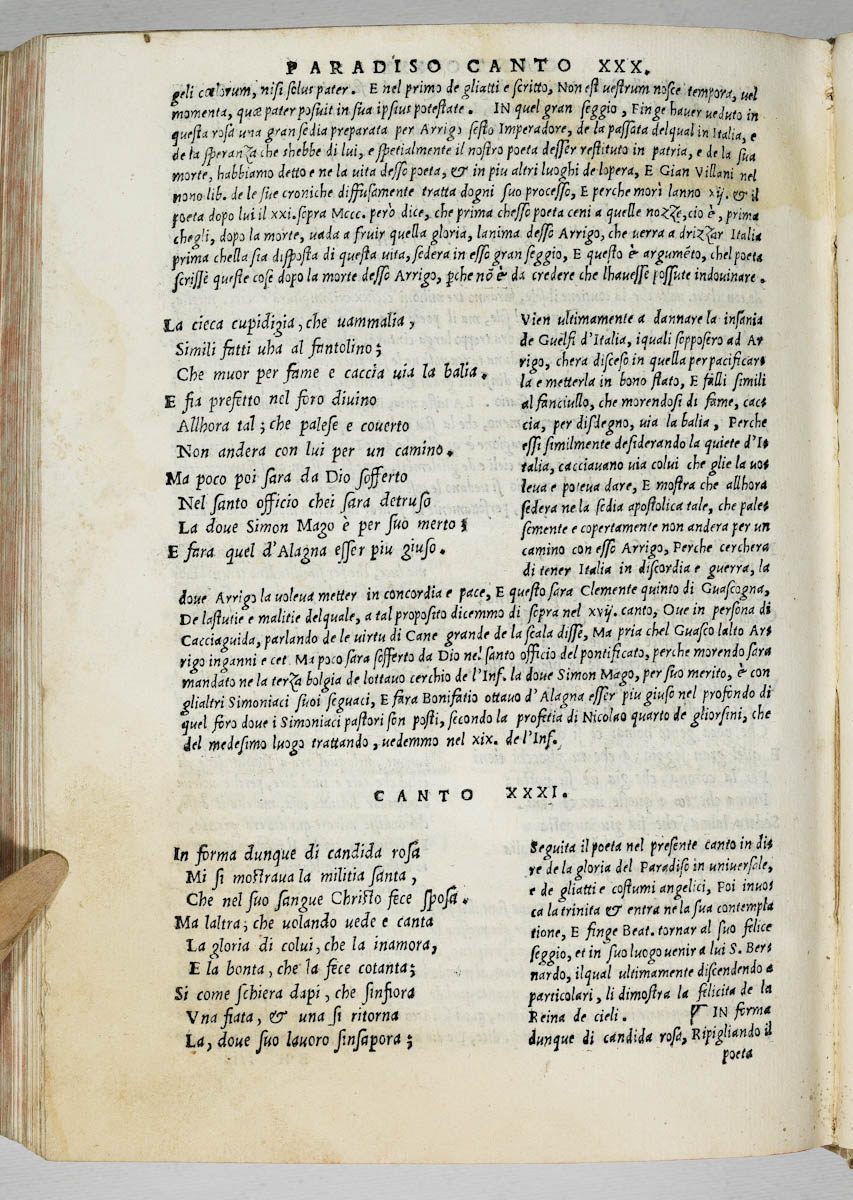 PARADISO CANTO XXX.
geli cœlorum, nisi solus pater. E nel primo de gliatti e scritto, Non est uestrum nosce tempora, uel
momenta, quæ pater posuit in sua ipsius potestate. IN quel gran seggio, Finge hauer ueduto in
questa rosa una gran sedia preparata per Arrigo sesto Imperadore, de la passata delqual in Italia, e
de la speranza che shebbe di lui, e spetialmente il nostro poeta desser restituto in patria, e de la sua
morte, habbiamo detto e ne la uita desso poeta, & in piu altri luoghi de lopera, E Gian Villani nel
nono lib. de le sue croniche diffusamente tratta dogni suo processo, E perche morì lanno xij. & il
poeta dopo lui il xxi. sopra Mccc. però dice, che prima chesso poeta ceni a quelle nozze, cio è, prima
chegli, dopo la morte, uada a fruir quella gloria, lanima desso Arrigo, che uerra a drizzar Italia
prima chella sia disposta di questa uita, sedera in esso gran seggio, E questo è argumẽto, chel poeta
scrisse queste cose dopo la morte desso Arrigo, pche nõ è da credere che lhauesse possute indouinare.
La cieca cupidigia, che uammalia,
Simili fatti uha al fantolino;
Che muor per fame e caccia uia la balia.
E fia prefetto nel foro diuino
Allhora tal; che palese e couerto
Non andera con lui per un camino.
Ma poco poi sara da Dio sofferto
Nel santo officio chei sara detruso
La doue Simon Mago è per suo merto;
E fara quel d'Alagna esser piu giuso.
Vien ultimamente a dannare la insania
de Guelfi d'Italia, iquali sopposero ad Ar
rigo, chera disceso in quella per pacificar-
la e metterla in bono stato, E falli simili
al fanciullo, che morendosi di fame, cac-
cia, per disdegno, uia la balia, Perche
essi similmente desiderando la quiete d'I-
talia, cacciauano uia colui che glie la uo-
leua e poteua dare, E mostra che allhora
sedera ne la sedia apostolica tale, che pale-
semente e copertamente non andera per un
camino con esso Arrigo, Perche cerchera
di tener Italia in discordia e guerra, la
doue Arrigo la uoleua metter in concordia e pace, E questo sara Clemente quinto di Guascogna,
De lastutie e malitie delquale, a tal proposito dicemmo di sopra nel xvij. canto, Oue in persona di
Cacciaguida, parlando de le uirtu di Cane grande de la scala disse, Ma pria chel Guasco lalto Ar-
rigo inganni e cet. Ma poco sara sofferto da Dio nel santo officio del pontificato, perche morendo sara
mandato ne la terza bolgia de lottauo cerchio de l'Inf. la doue Simon Mago, per suo merito, è con
glialtri Simoniaci suoi seguaci, E fara Bonifatio ottauo d'Alagna esser piu giuso nel profondo di
quel foro doue i Simoniaci pastori son posti, secondo la profetia di Nicolao quarto de gliorsini, che
del medesimo luogo trattando, uedemmo nel xix. de l'Inf.
CANTO XXXI.
In forma dunque di candida rosa
Mi si mostraua la militia santa,
Che nel suo sangue Christo fece sposa.
Ma laltra; che uolando uede e canta
La gloria di colui, che la inamora,
E la bonta, che la fece cotanta;
Si come schiera dapi, che sinfiora
Vna fiata, & una si ritorna
La, doue suo lauoro sinsapora;
Seguita il poeta nel presente canto in di-
re de la gloria del Paradiso in uniuersale,
e de gliatti e costumi angelici, Poi inuo-
ca la trinita & entra ne la sua contempla
tione, E finge Beat. tornar al suo felice
seggio, et in suo luogo uenir a lui S. Ber-
nardo, ilqual ultimamente discendendo a
particolari, li dimostra la felicita de la
Reina de cieli. IN forma
dunque di candida rosa, Ripigliando il
poeta